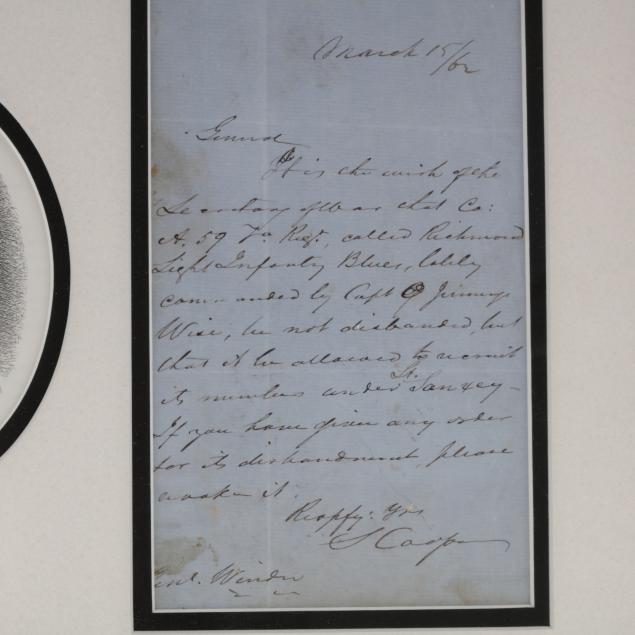 March 15/62
General
It is the wish of the
Secretary of War that Co:
A, 59 Va Regt, called Richmond
Light Infantry Blues, lately
commanded by Capt O Jennings
Wise, be not disbanded, but
that it be allowed to recruit
its numbers under Lt.
If you have given any order
for its disbandment, please
revoke it.
Respfy: Yrs
S Cooper
Genl. Winder